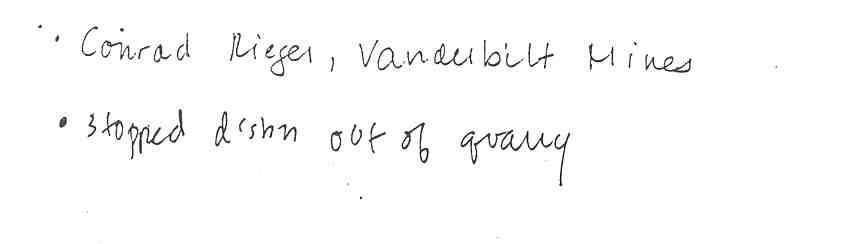 • Conrad Rieger, Vanderbilt Mines
• Stopped out of quarry